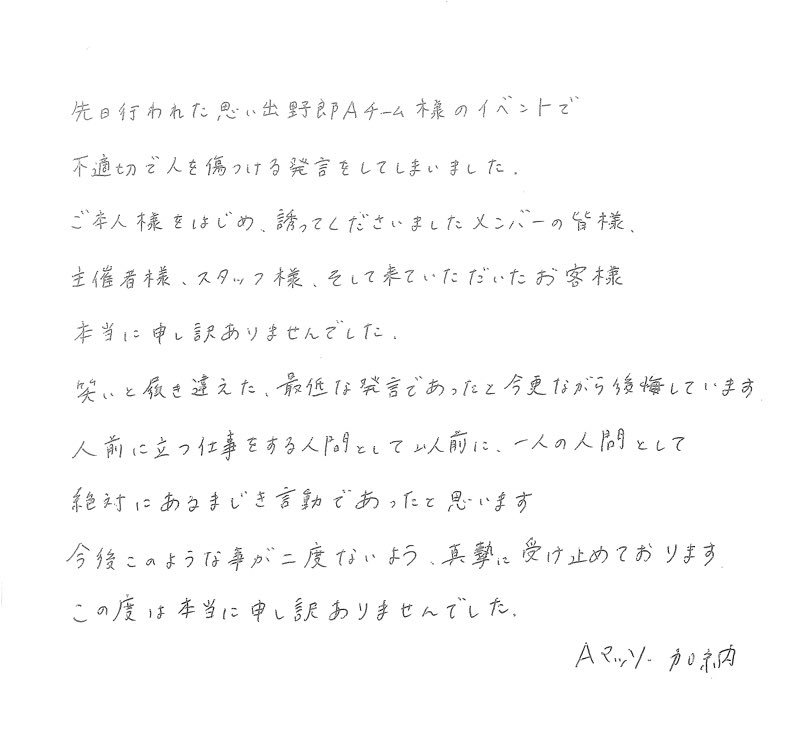 先日行われた思い出野郎Aチーム様のイベントで
不適切で人を傷つける発言をしてしまいました.
ご本人様をはじめ、誘ってくださいましたメンバーの皆様、
主催者様、スタッフ様、そして来ていただいたお客様
本当に申し訳ありませんでした.
笑いと履き違えた、最低な発言であったと今更ながら後悔しています
人前に立つ仕事をする人間として以前に、一人の人間として
絶対にあるまじき言動であったと思います
今後このような事が二度ないよう、真摯に受け止めております
この度は本当に申し訳ありませんでした.
Aマッソ 加納